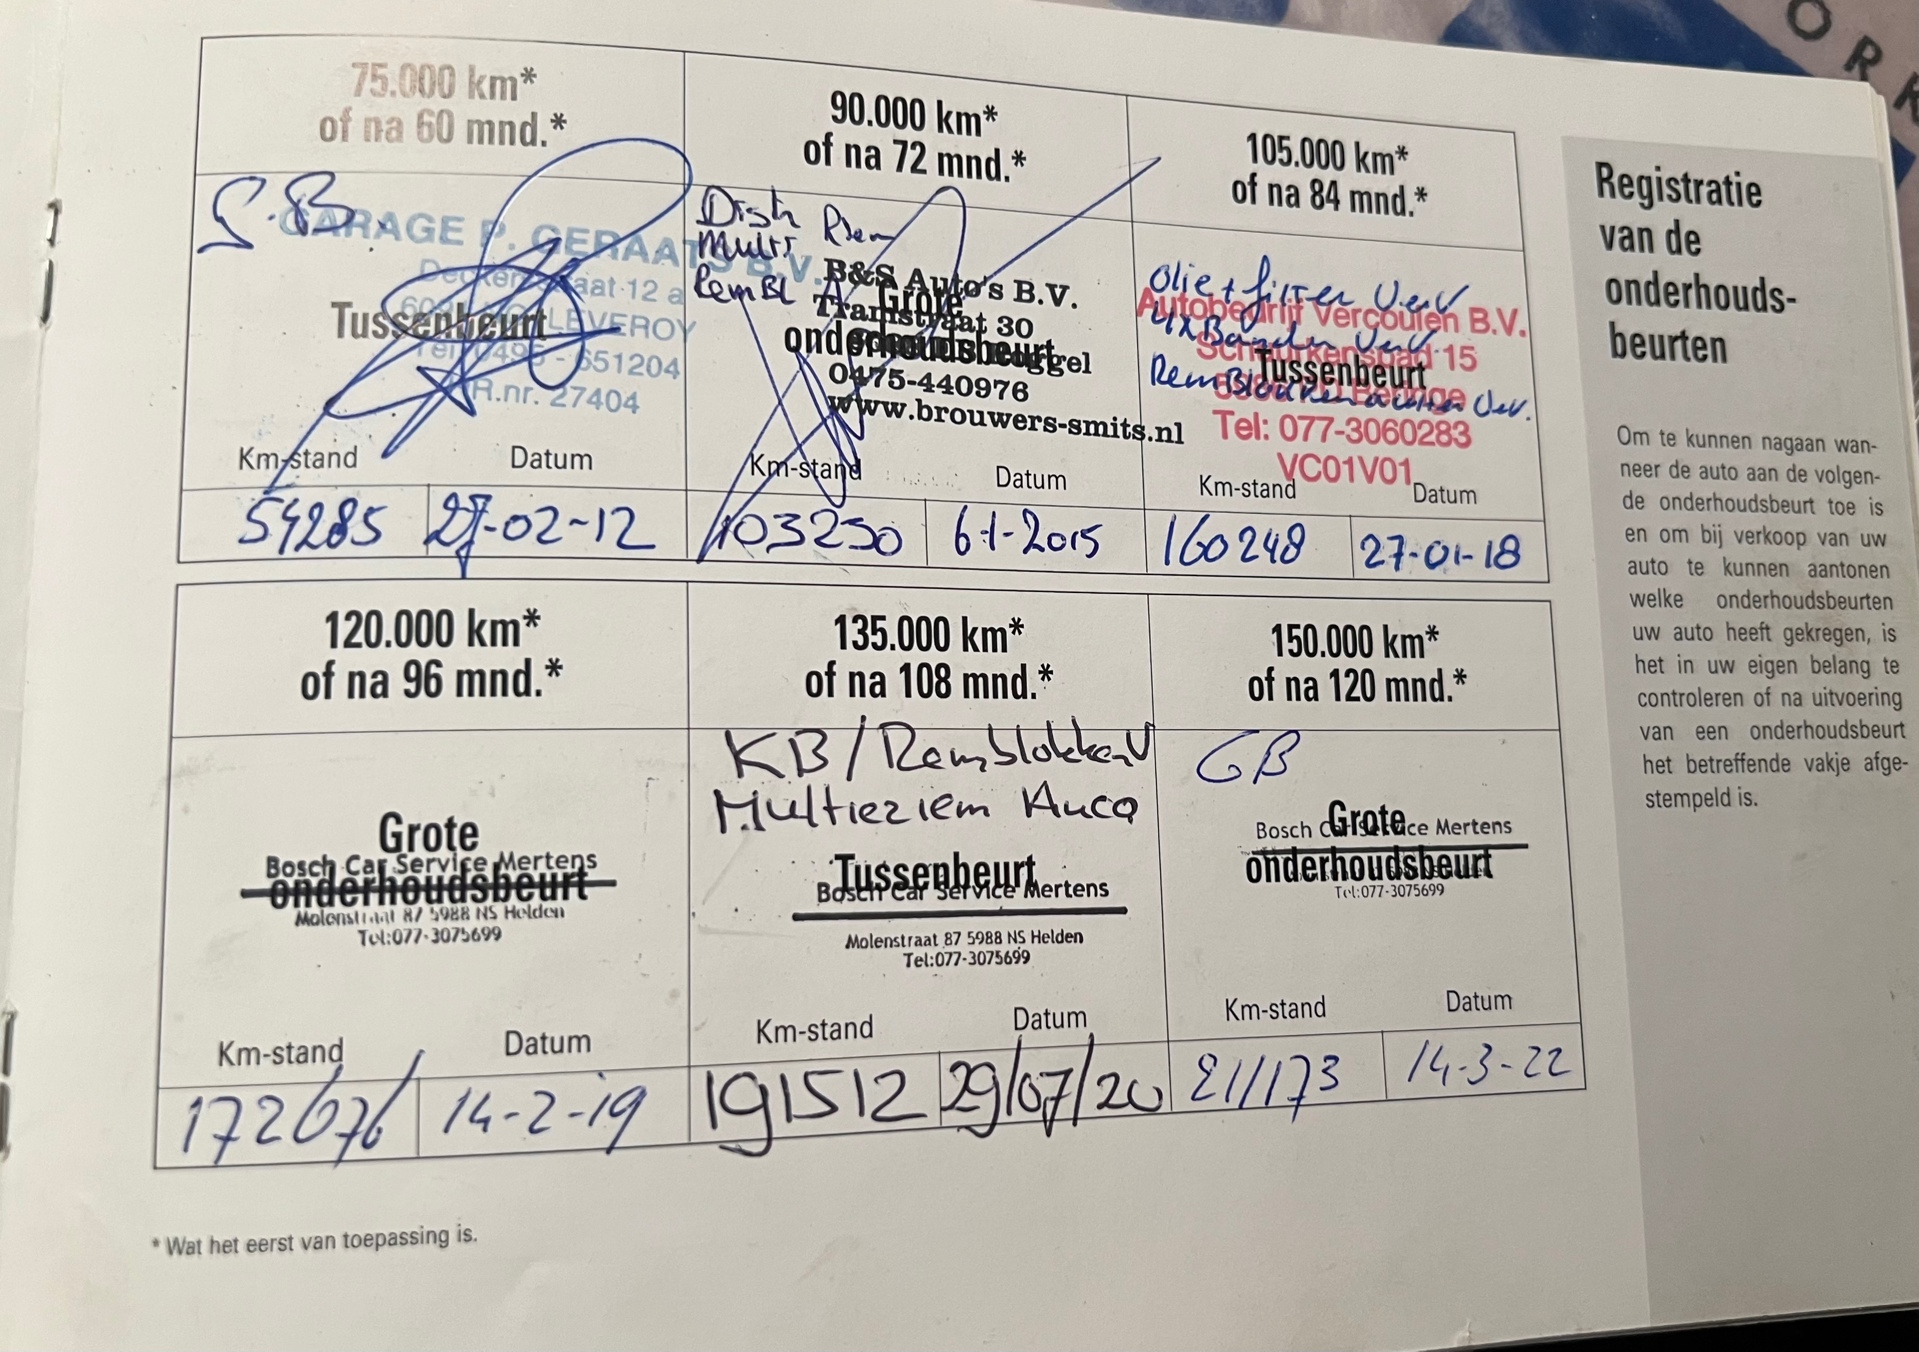 ORK
75.000 km*
of na 60 mnd.*
G.B.
GARAGE P. GERAATS B.V.
12 a
LEVEROY
Tussenbeurt
Tel. 0495 - 651204
R.nr. 27404
Km-stand Datum
54285 27-02-12
90.000 km*
of na 72 mnd.*
Distr Riem
Multi
RemBl
B&S Auto's B.V.
Grote
Tramstraat 30
onderhoudsbeurt
0475-440976
www.brouwers-smits.nl
Km-stand Datum
103250 6-1-2015
105.000 km*
of na 84 mnd.*
Olie + filter Verv
Autobedrijf Vercoulen B.V.
4x Banden Verv
15
Tussenbeurt
RemBlokken achter Verv.
Tel: 077-3060283
VC01V01
Km-stand Datum
160248 27-01-18
120.000 km*
of na 96 mnd.*
Grote
Bosch Car Service Mertens
onderhoudsbeurt
Molenstraat 87 5988 NS Helden
Tel:077-3075699
Km-stand Datum
172076 14-2-19
135.000 km*
of na 108 mnd.*
KB/Remblokken V
Multieriem Airco
Tussenbeurt
Bosch Car Service Mertens
Molenstraat 87 5988 NS Helden
Tel:077-3075699
Km-stand Datum
191512 29/07/20
150.000 km*
of na 120 mnd.*
GB
Grote
Bosch Car Service Mertens
onderhoudsbeurt
Tel:077-3075699
Km-stand Datum
211173 14-3-22
* Wat het eerst van toepassing is.
Registratie
van de
onderhouds-
beurten
Om te kunnen nagaan wan-
neer de auto aan de volgen-
de onderhoudsbeurt toe is
en om bij verkoop van uw
auto te kunnen aantonen
welke onderhoudsbeurten
uw auto heeft gekregen, is
het in uw eigen belang te
controleren of na uitvoering
van een onderhoudsbeurt
het betreffende vakje afge-
stempeld is.